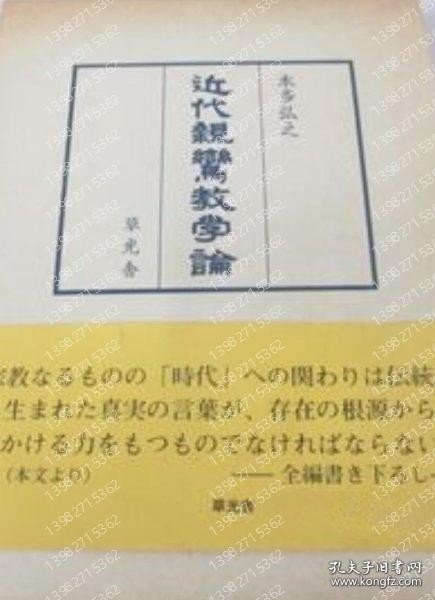 本多弘之
近代親鸞教学論
草光舎
宗教なるものの「時代」への関わりは伝統
生まれた真実の言葉が、存在の根源から
かける力をもつものでなければならない
（本文より）
——全編書き下ろし
草光舎
13982715362
孔夫子旧书网
www.kongfz.com